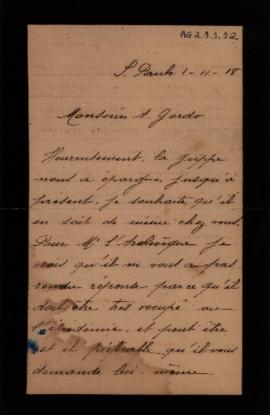 AG 2.1.1.92
S. Paulo 1-11-18
Monsieur A. Gordo
Heureusement, la grippe
nous a épargnés jusqu'à
présent, je souhaite qu'il
en soit de même chez vous.
Pour Mr l'Archevêque je
crois qu'il ne vous a pas
rendu réponse parce qu'il
doit être très occupé vu
l'épidemie, et peut être
est il préférable qu'il vous
demande lui-même